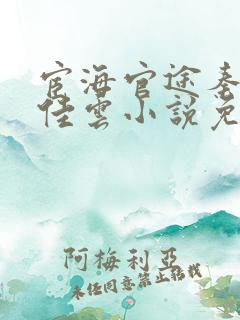 宦海官途秦
佳雲小說免
阿梅利亞
未經同意禁止轉載